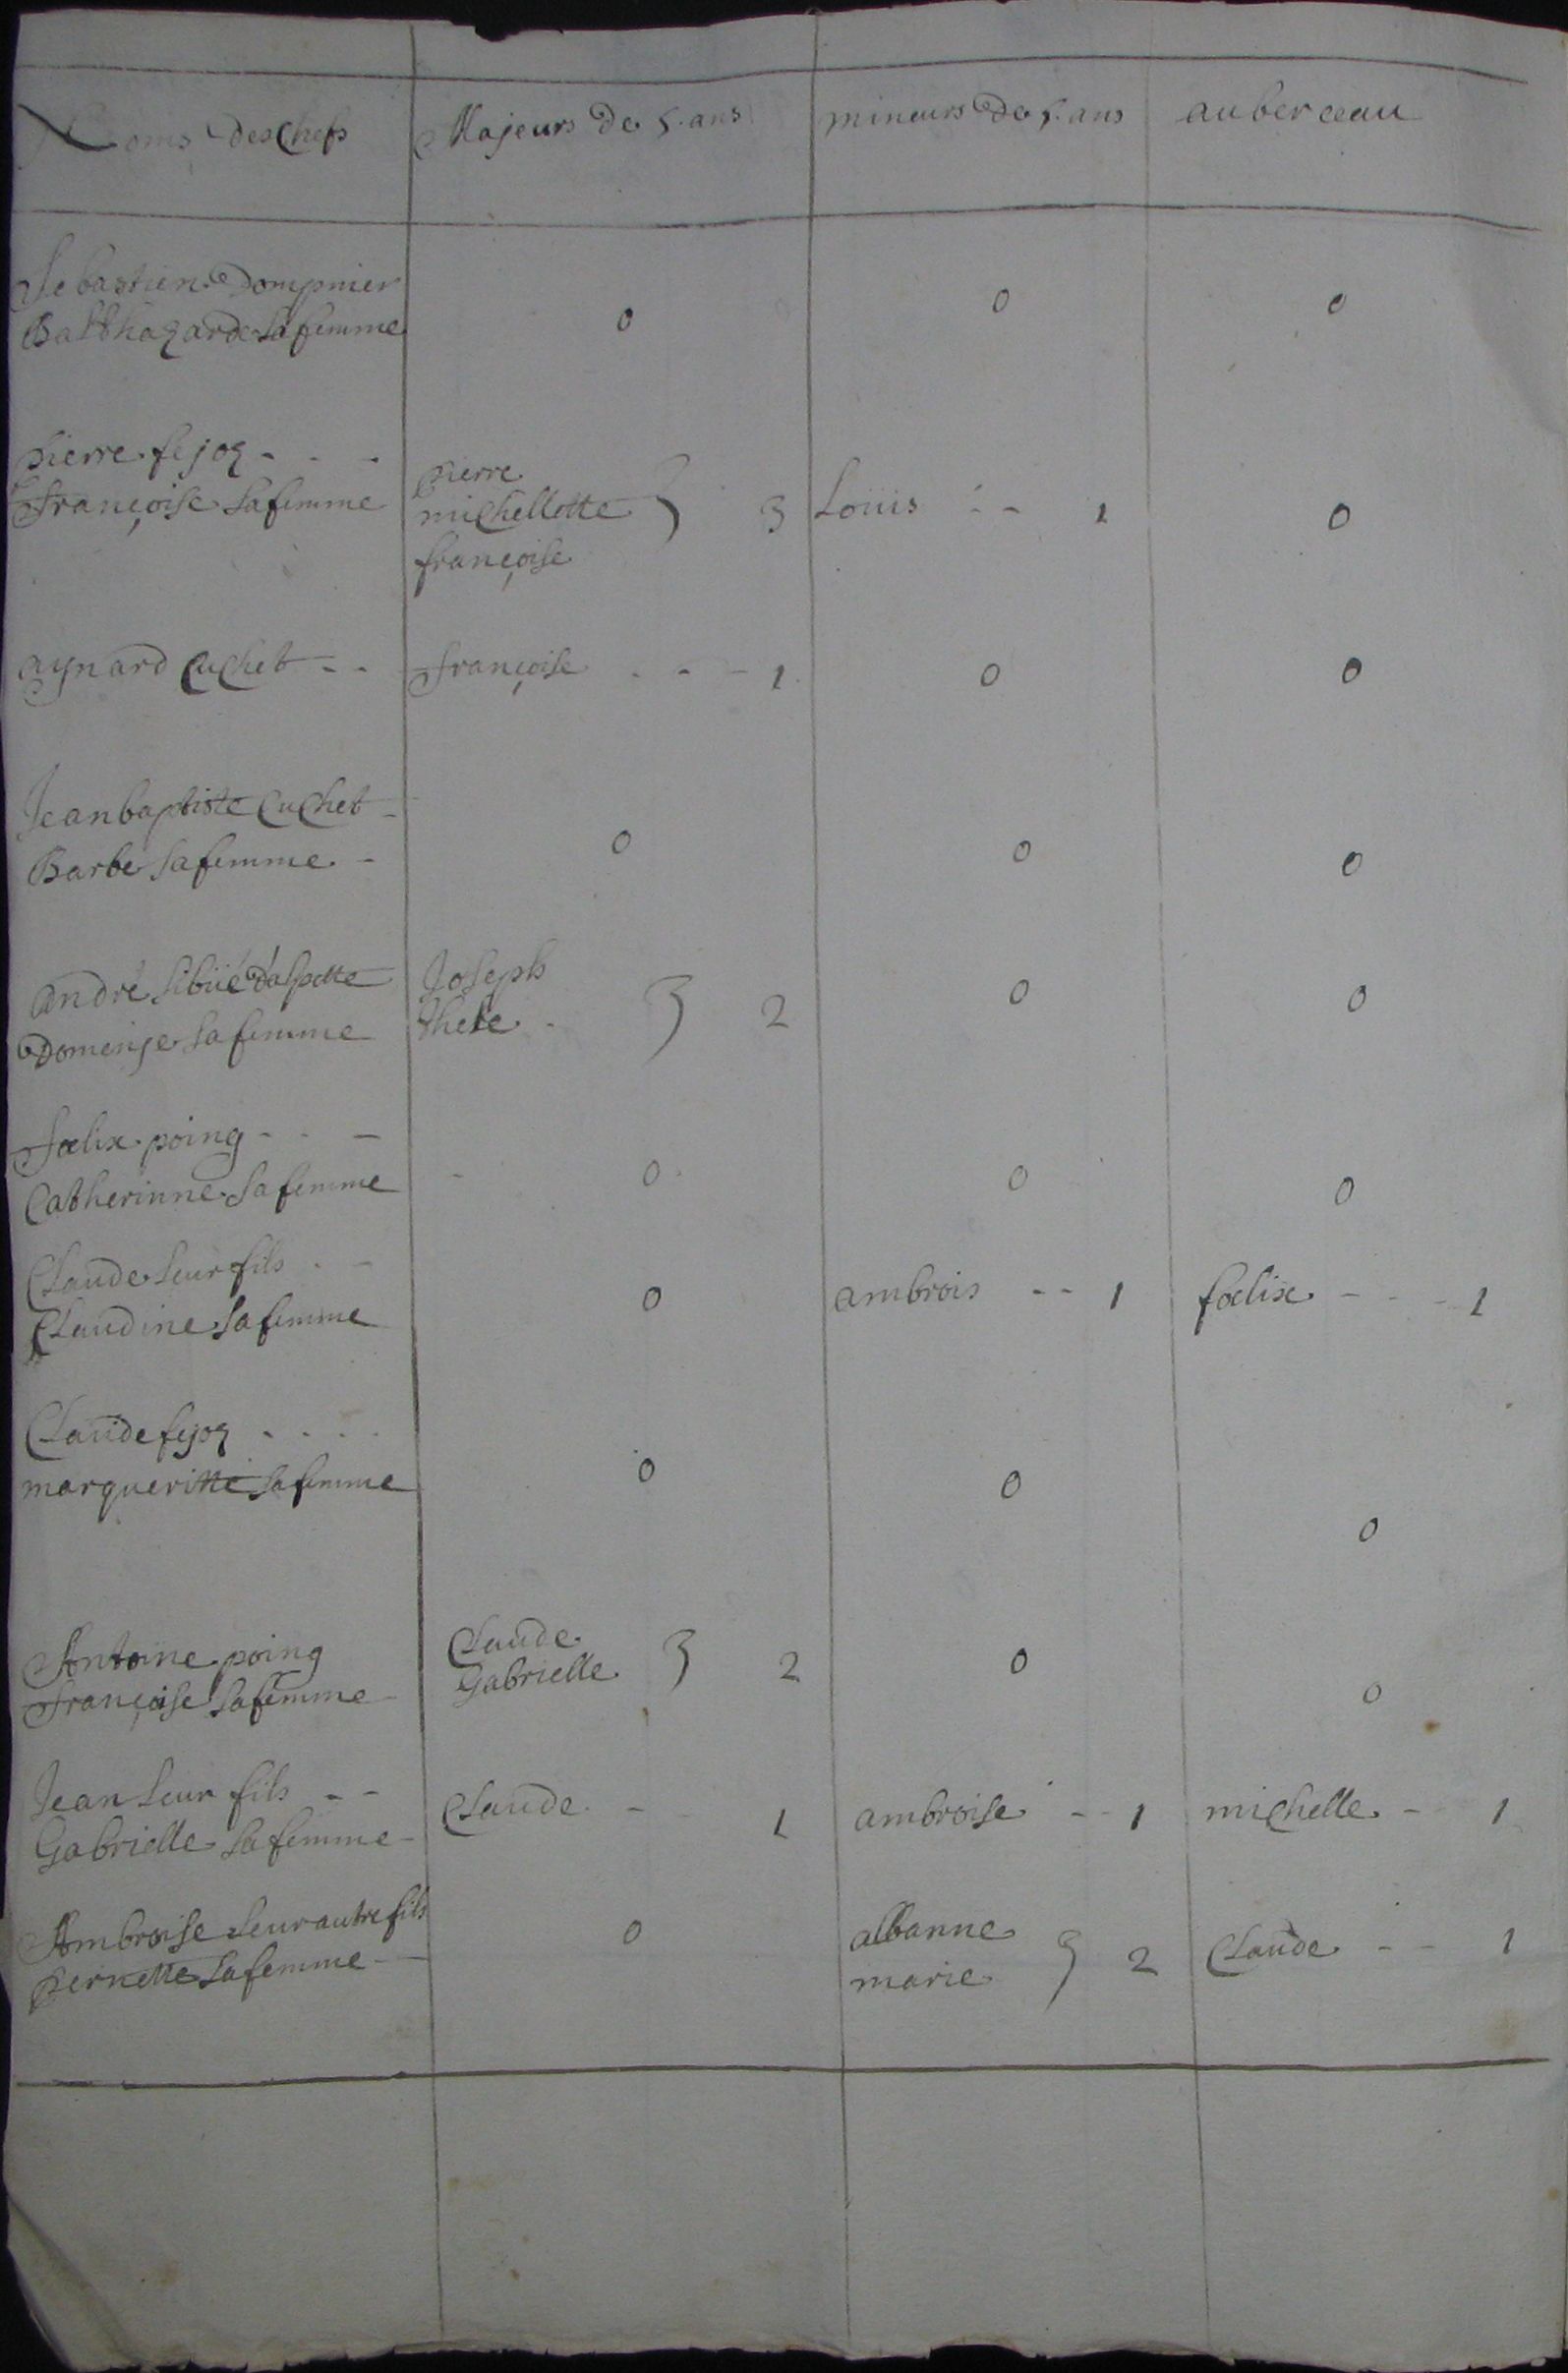 Noms des Chefs Majeurs de 5. ans mineurs de 5. ans au berceau
Sebastien Dompnier
Balthazarde sa femme 0 0 0
pierre fejoz - - -
françoise sa femme
pierre
michellotte } 3 Loüis - - 1 0
françoise
aynard Cuchet - - françoise - - - 1 0 0
Jean baptiste Cuchet -
Barbe sa femme - 0 0 0
André sibüé d'aspette Joseph
Domenje sa femme } 2 0 0
fœlix poing - - -
Catherinne sa femme - 0 0 0
Claude leur fils - -
Claudine sa femme 0 ambrois - - 1 fœlix - - - 1
Claude fejoz - - - -
margueritte sa femme 0 0 0
Antoine poing Claude
françoise sa femme - Gabrielle } 2 0 0
Jean leur fils - -
Gabrielle sa femme - Claude - 1 ambroise - - 1 michelle - 1
Ambroise leur autre fils albanne
pernette sa femme - 0 marie } 2 Claude - - 1